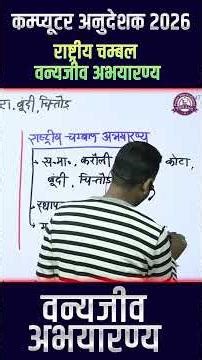 कम्प्यूटर अनुदेशक 2026
राष्ट्रीय चम्बल
वन्यजीव अभयारण्य
रा. बूंदी, चितौड़
राष्ट्रीय-चम्बल अभयारण्य
- स.मा., करौली कोटा,
बूंदी, चितौड़
- स्थाप
वन्यजीव
अभयारण्य